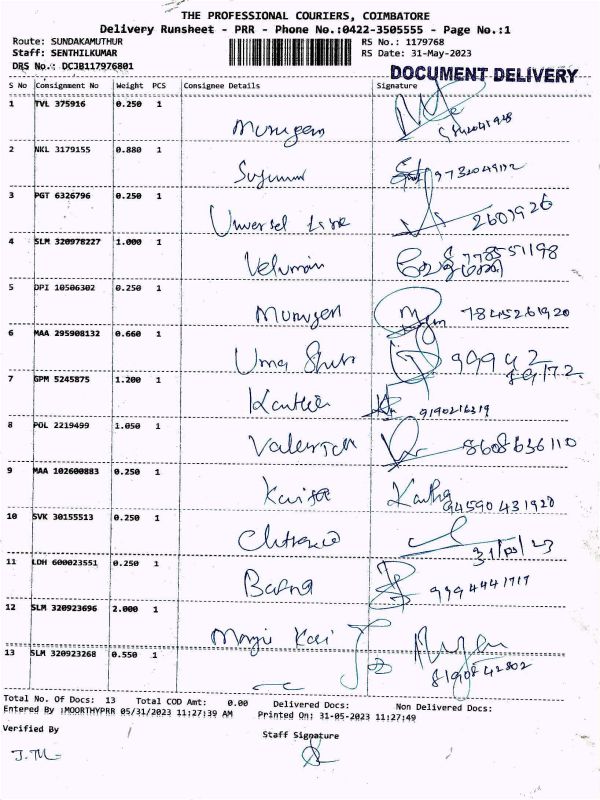 THE PROFESSIONAL COURIERS, COIMBATORE
Delivery Runsheet - PRR - Phone No.:0422-3505555 - Page No.:1
Route: SUNDAKAMUTHUR RS No.: 1179768
Staff: SENTHILKUMAR RS Date: 31-May-2023
DRS No.: DCJB117976801
DOCUMENT DELIVERY
S No Consignment No Weight PCS Consignee Details Signature
1 TVL 375916 0.250 1
Murugan
2 NKL 3179155 0.880 1
3 PGT 6326796 0.250 1
Universel 2601926
4 SLM 320978227 1.000 1
Velumani 778551198
5 DPI 10506302 0.250 1
Murugen 7845261920
6 MAA 295908132 0.660 1
Uma 99942
7 GPM 5245875 1.200 1
9190216319
8 POL 2219499 1.050 1
8608636110
9 MAA 102600883 0.250 1
94590431920
10 SVK 30155513 0.250 1
11 LDH 600023551 0.250 1
9994441717
12 SLM 320923696 2.000 1
13 SLM 320923268 0.550 1
8190842802
Total No. Of Docs: 13 Total COD Amt: 0.00 Delivered Docs: Non Delivered Docs:
Entered By :MOORTHYPRR 05/31/2023 11:27:39 AM Printed On: 31-05-2023 11:27:49
Verified By Staff Signature